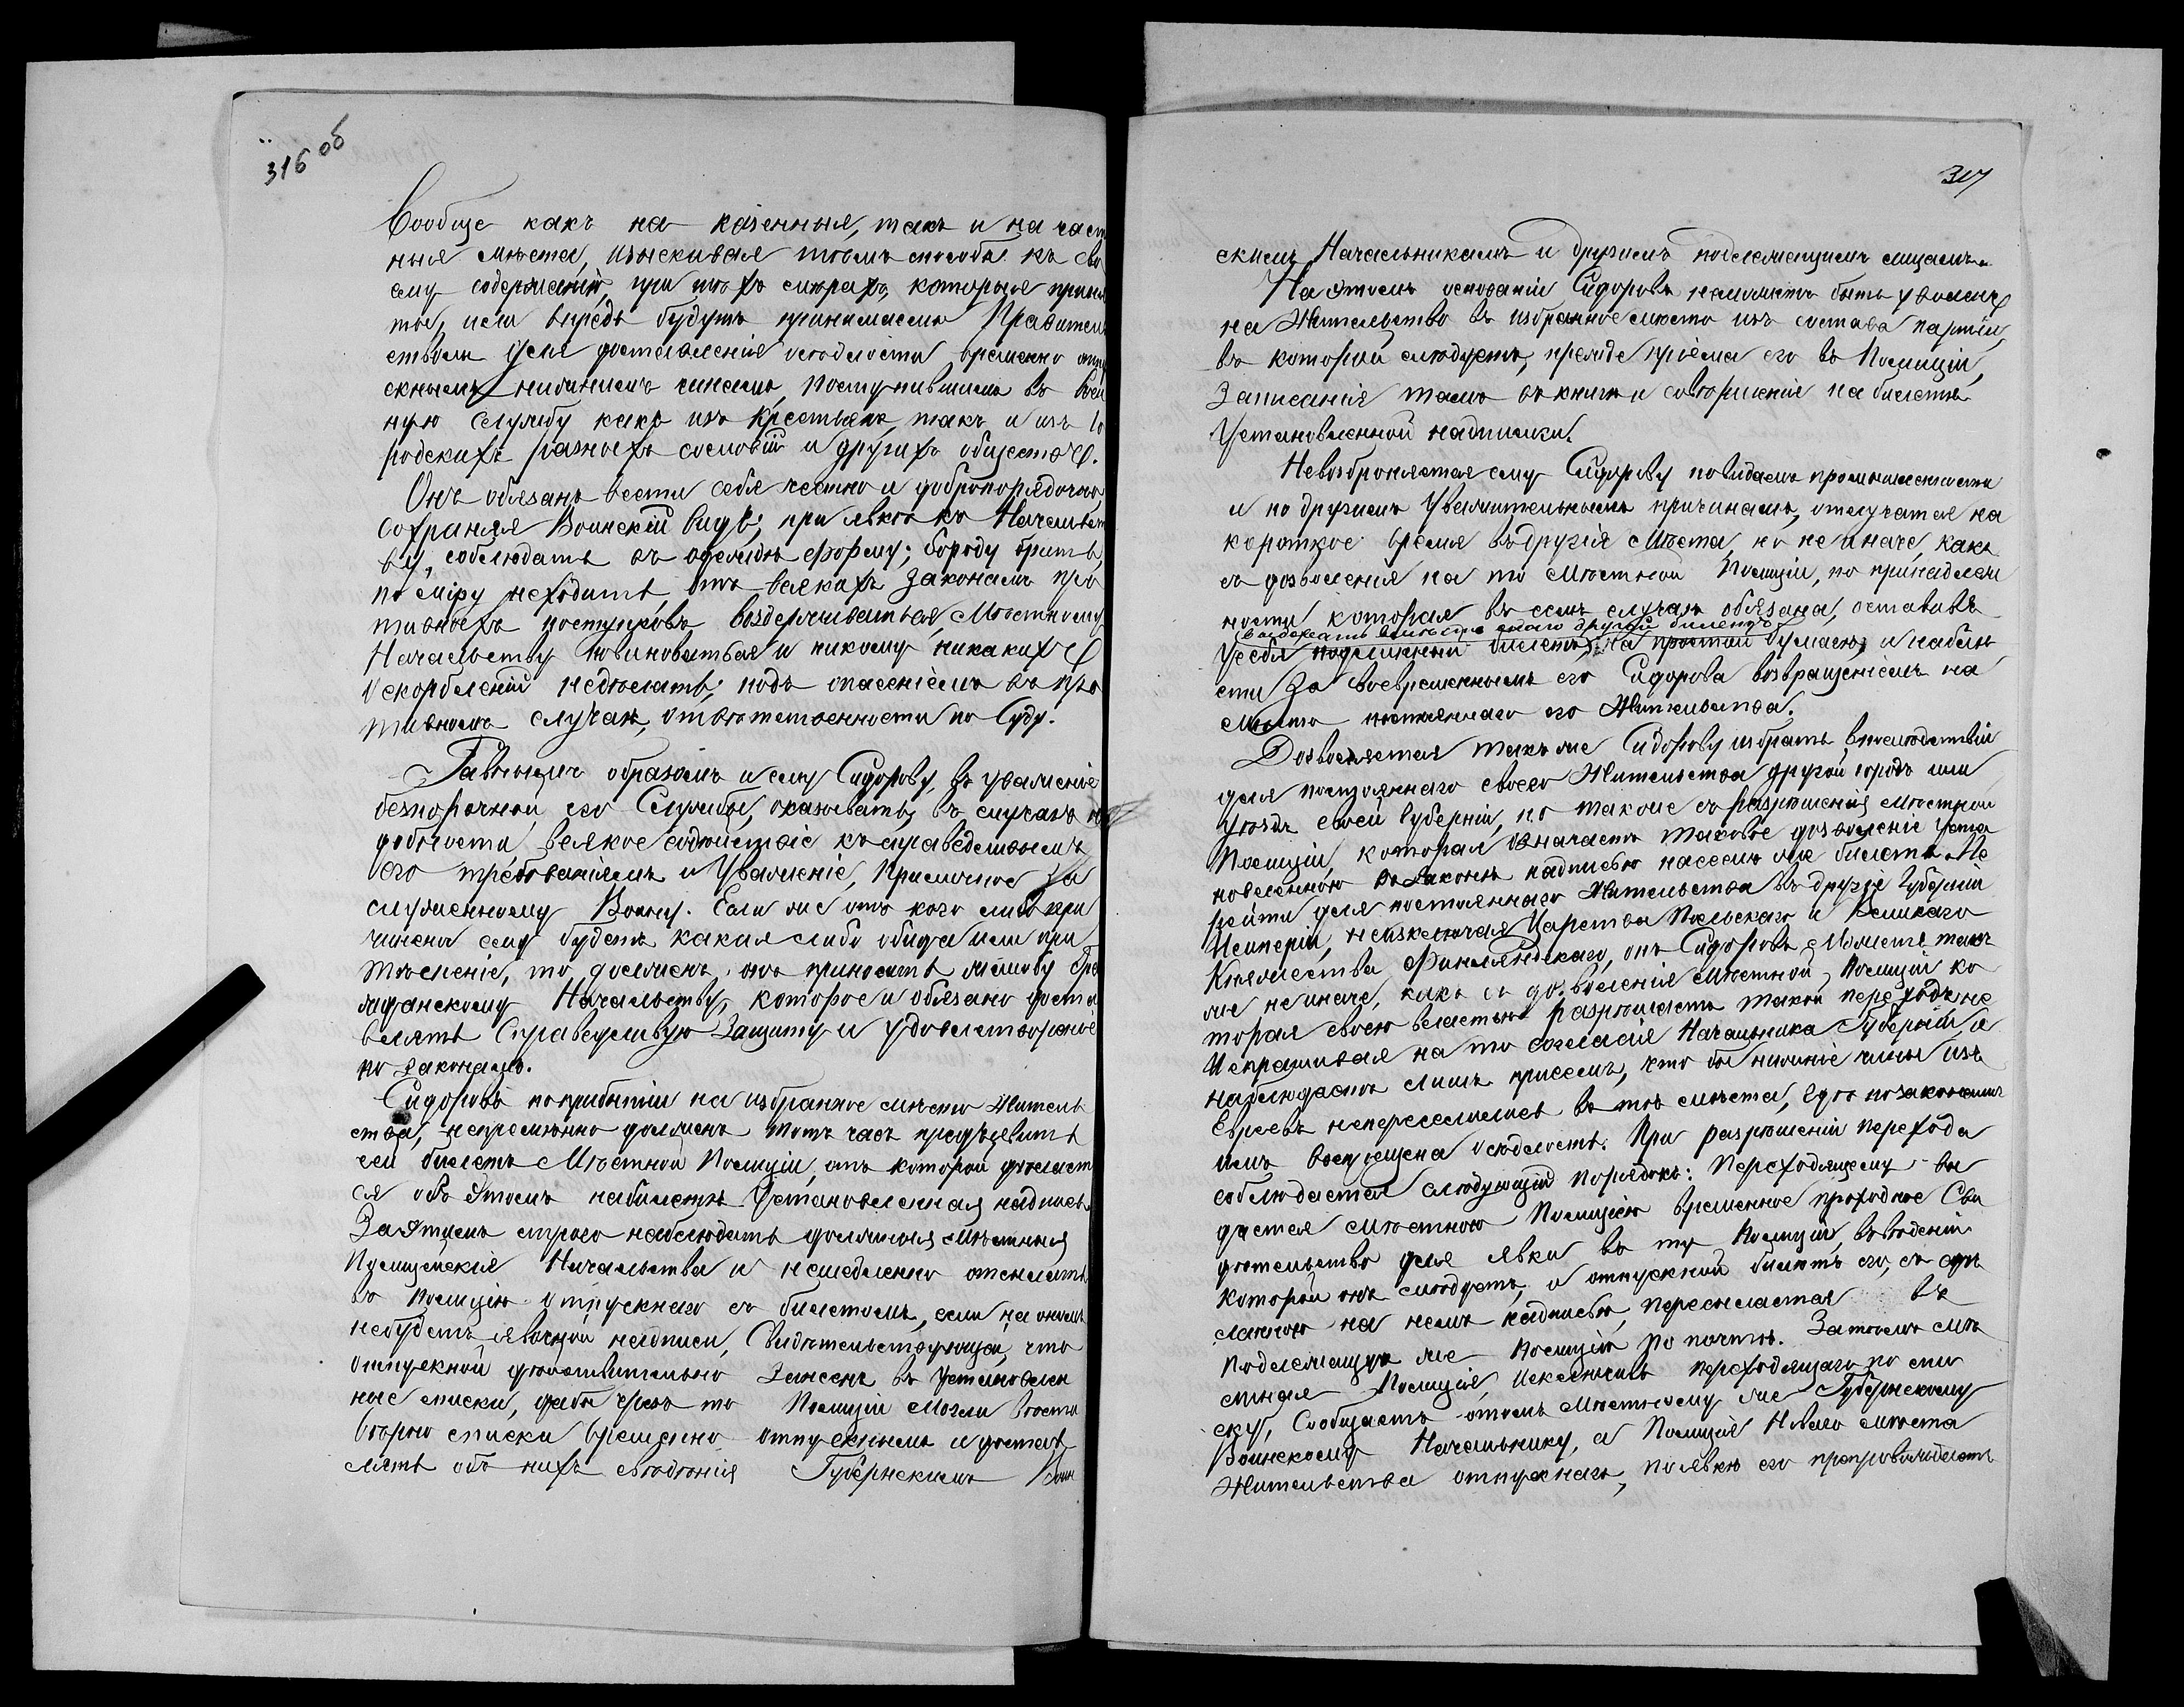 316 об
Вообще какъ на казенныя, такъ и на част
ныя мѣста, изыскивая тѣмъ способъ къ сво
ему содержанію, при тѣхъ мѣрахъ, которыя приня
ты, или впредь будутъ принимаемы Правитель
ствомъ для доставленія осѣдлости временно отпу
скнымъ нижнимъ чинамъ, поступившимъ въ воен
ную службу какъ изъ крестьянъ, такъ и изъ го
родскихъ разныхъ сословій и другихъ обществъ.
Онъ обязанъ вести себя честно и добропорядочно,
сохраняя Воинскій видъ; при явкѣ къ Начальст
ву, соблюдать въ одеждѣ форму; бороду брить,
по міру неходить, отъ всякихъ законамъ про
тивныхъ поступковъ воздерживаться, Мѣстному
Начальству повиноваться и никому никакихъ
оскорбленій недѣлать, подъ опасеніемъ въ про
тивномъ случаѣ, отвѣтственности по Суду.
Равнымъ образомъ и ему Сидорову, въ уваженіе
безпорочной его Службы, оказывать, въ случаѣ на
добности всякое содѣйствіе къ справедливымъ
его требованіямъ и Уваженіе, приличное за
служенному Воину. Если же отъ кого либо при
чинена ему будетъ какая либо обида или при
тѣсненіе, то долженъ онъ приносить жалобу Гра
жданскому Начальству, которое и обязано доста
влять Справедливую Защиту и удовлетвореніе
по законамъ.
Сидоровъ поприбытіи на избранное мѣсто Житель
ства, непремѣнно долженъ тотъ часъ предъявить
сей билетъ Мѣстной Полиціи, отъ которой дѣлает
ся объ этомъ набилетѣ Установленная надпись.
За этимъ строго наблюдать должны мѣстныя
Полицейскія Начальства и немедленно отсылать
въ Полицію отпускнаго съ билетомъ, если на ономъ
небудетъ явочной надписи, Свидѣтельствующей, что
отпускной дѣйствительно Занесенъ въ Установлен
ные списки, дабы чрезъ то Полиціи могли вѣсти
вѣрно списки временно отпускнымъ и достав
лять объ нихъ свѣдѣнія Губернскимъ Воин
317
скимъ Начальникамъ и другимъ подлежащимъ лицамъ.
На этомъ основаніи Сидоровъ неможетъ быть уволенъ
на Жительство въ избранное мѣсто изъ состава партіи,
въ которой слѣдуетъ, прежде пріема его въ Полиціи,
Записанія тамъ въ книги и совершенія на билетѣ
Установленной надписки.
Невозбраняется ему Сидорову по видамъ промышленности
и по другимъ Уважительнымъ причинамъ, отлучатся на
короткое время въ другія мѣста, но не иначе, какъ
съ дозволенія на то мѣстной Полиціи, по принадлеж
ности которая въ семъ случаѣ обязана, оставивъ
выдавать вмѣсто онаго другой билетъ
Усебя подлинный билетъ, на простой бумагѣ, и наблю
сти за своевременнымъ его Сидорова возвращеніемъ на
мѣсто постояннаго его Жительства.
Дозволяется также Сидорову избрать впослѣдствіи
для постояннаго своего Жительства другой городъ или
Уѣздъ своей Губерніи, но также съ разрѣшенія мѣстной
Полиціи, которая означаетъ таковое дозволеніе Уста
новленною въ законѣ надписью насемъ же билетѣ. Пе
рейти для постояннаго Жительства въ другія Губерніи
Имперіи, неисключая Царства Польскаго и Великаго
Княжества Финляндскаго, онъ Сидоровъ, можетъ так
же не иначе, какъ съ дозволенія мѣстной Полиціи ко
торая своею властью разрѣшаетъ такой переходъ не
испрашивая на то согласія Начальника Губерніи и
наблюдаетъ лишь присемъ, что бы нижніе чины изъ
Евреевъ непереселились въ тѣ мѣста, гдѣ по законамъ
имъ воспрещена осѣдлость. При разрѣшеніи перехода
соблюдается слѣдующій порядокъ: Переходящему вы
дается мѣстною Полиціею временное проходное Сви
дѣтельство для явки въ ту Полицію, въ вѣденіи
которой онъ слѣдуетъ, и отпускной билетъ его, съ сдѣ
ланною на немъ надписью, пересылается въ
подлежащую же Полицію по почтѣ. Затѣмъ мѣ
стная Полиція, исключивъ переходящаго по спи
ску, Сообщаетъ отомъ мѣстному же Губернскому
Воинскому Начальнику, а Полиція Новаго мѣста
Жительства отпускнаго, по явкѣ его препровождаетъ